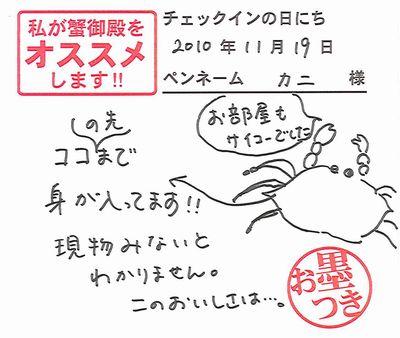 私が蟹御殿を
オススメ
します!!
チェックインの日にち
2010 年 11 月 19 日
ペンネーム カニ 様
お部屋も
サイコーでした
の先
ココまで
身が入ってます!!
現物みないと
わかりません。
このおいしさは…。
お墨つき